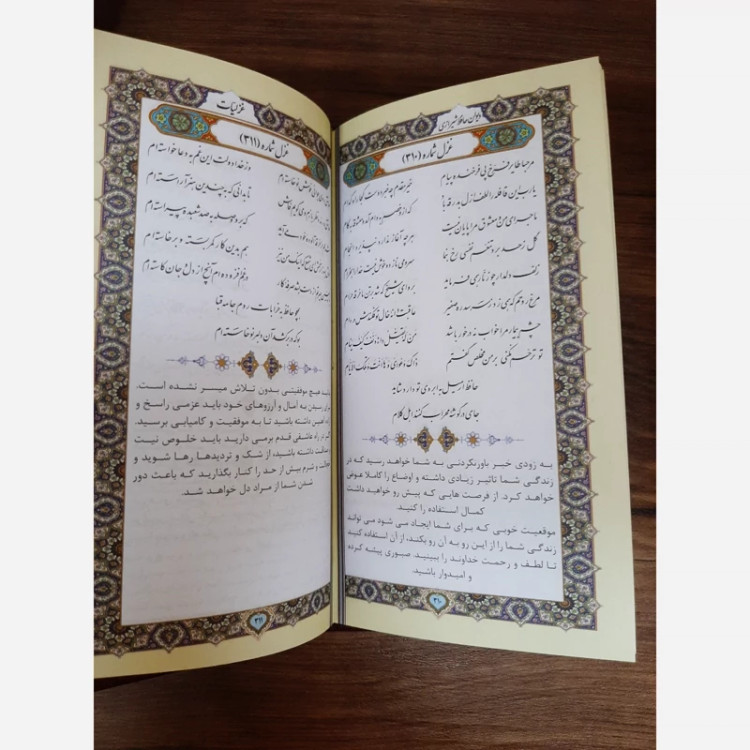 دیوان حافظ شیرازی
غزل شماره (۳۱۰)
مرحبا طایر فرخ پی فرخنده پیام خیر مقدم چه خبر دوست کجا راه کدام
یارب این قافله را لطف ازل بدرقه باد که ازو خصم به دام آمد و معشوقه به کام
ماجرای من و معشوق مرا پایان نیست هرچه آغاز ندارد نپذیرد انجام
گل ز حد برد تنعم نفسی رخ بنما سرو می نازد و خوش نیست خدا را بخرام
زلف دلدار چو زنار همی فرماید برو ای شیخ که شد بر تن ما خرقه حرام
مرغ روحم که همی زد ز سر سدره صفیر عاقبت دانه خال تو فکندش در دام
چشم بیمار مرا خواب نه درخور باشد
تو ترحم نکنی بر من مخلص گفتم
حافظ ار میل به ابروی تو دارد شاید
جای در گوشه محراب کنند اهل کلام
به زودی خبر باورنکردنی به شما خواهد رسید که در
زندگی شما تاثیر زیادی داشته و اوضاع را کاملا عوض
خواهد کرد. از فرصت هایی که پیش رو خواهید داشت
کمال استفاده را کنید.
موقعیت خوبی که برای شما ایجاد می شود می تواند
زندگی شما را از این رو به آن رو بکند، از آن استفاده کنید
تا لطف و رحمت خداوند را ببینید. صبوری پیشه کرده
و امیدوار باشید.
۳۱۰
غزلیات
غزل شماره (۳۱۱)
خوش نوخاسته ام وز خدا دولت این غم به دعا خواسته ام
تا بدانی که به چندین هنر آراسته ام
که بر او وصله به صد شعبده پیراسته ام
هم بدین کار کمر بسته و برخاسته ام
در غم افزوده ام آنچ از دل و جان کاسته ام
همچو حافظ به خرابات روم جامه قبا
بو که در بر کشد آن دلبر نوخاسته ام
هیچ موفقیتی بدون تلاش میسر نشده است.
برای رسیدن به آمال و آرزوهای خود باید عزمی راسخ و
داشته باشید تا به موفقیت و کامیابی برسید.
اگر در راه عاشقی قدم برمی دارید باید خلوص نیت
و صداقت داشته باشید، از شک و تردیدها رها شوید و
و شرم بیش از حد را کنار بگذارید که باعث دور
شدن شما از مراد دل خواهد شد.
۳۱۱